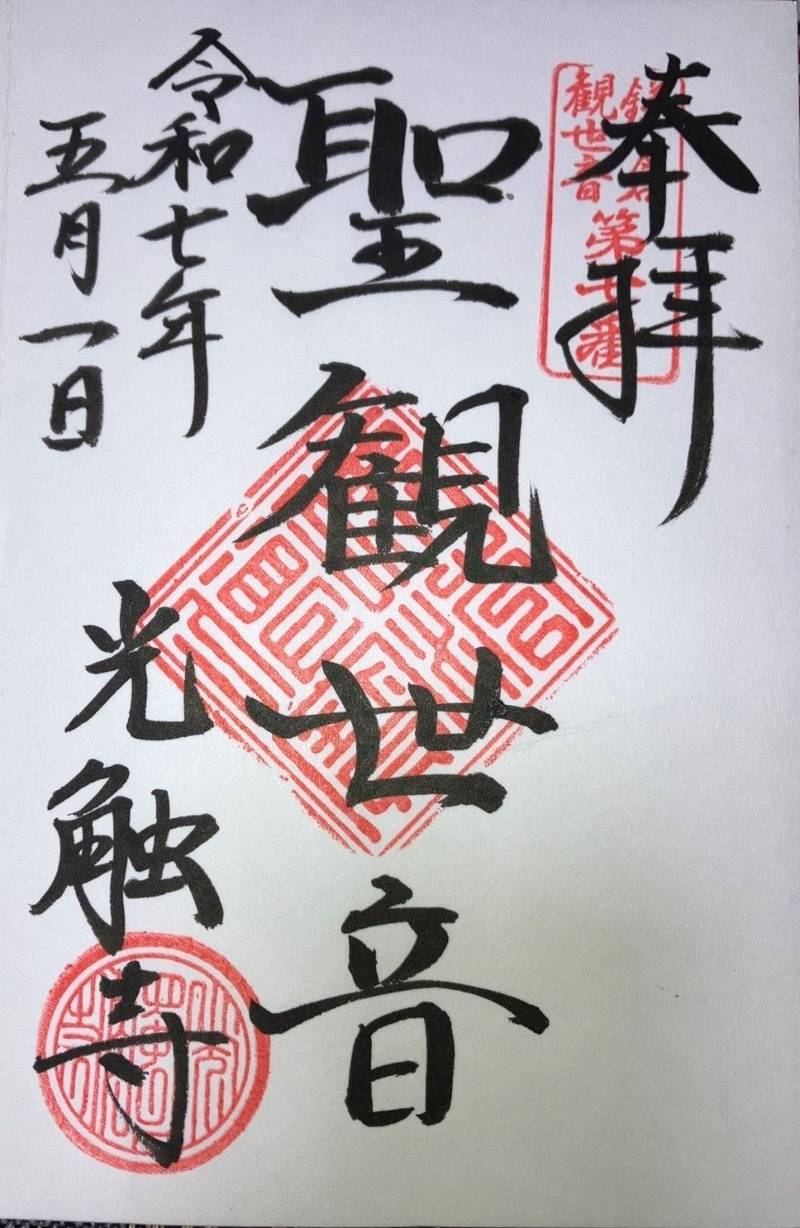 奉拝
鎌倉
観世音第七番
聖観世音
令和七年
五月一日
光触寺